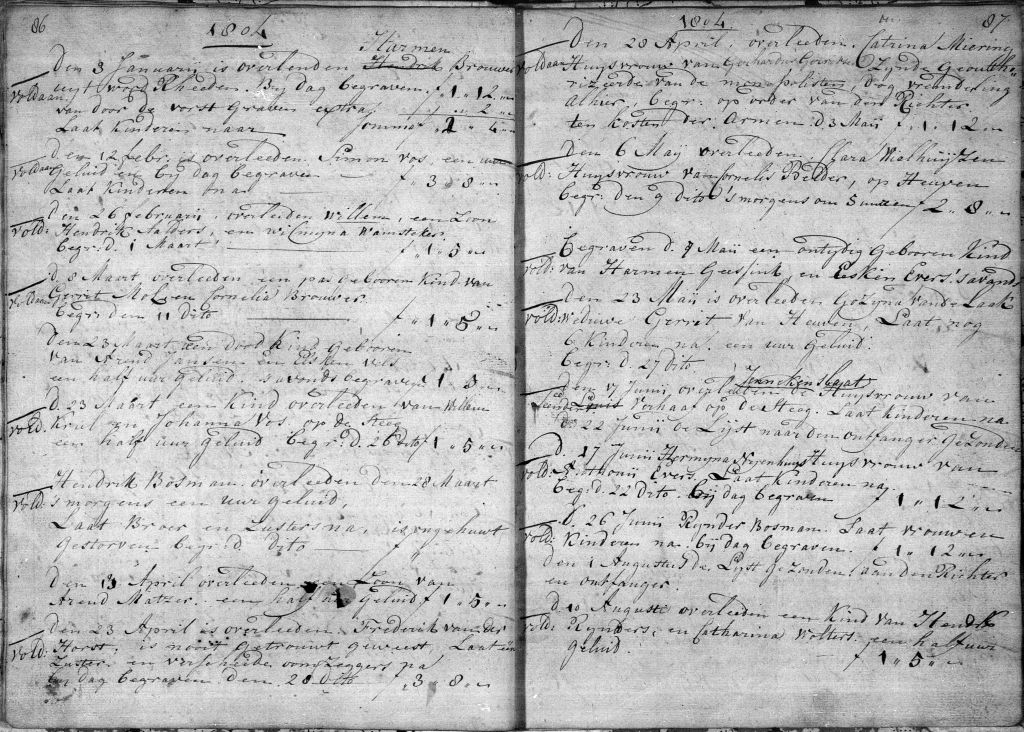 86
1804
Harmen
Den 3 Januarii is overleeden Hendrik Brouwer
uyt voor Rheeden. Bij dag begraven. f 1 " 12 "
voldaan, van door de vorst Graven extra f " 2 "
Laat kinderen naar somma f 4 "
d. en 12 febr. is overleeden Simon Vos, een uur
voldaan Geluid en bij dag begraven f 3 " 8 "
Laat Kinderen na
den 26 februarii, overleiden Willem, een Zoon
vold: Hendrik Aalders, en Wilmyna Wamsteker
begr: d. 1 Maart f 1 " 5 "
d. 8 Maart overleeden een pas gebooren Kind van
voldaan Gerrit Mol en Cornelia Brouwer
begr: den 11 dito f " 1 " 5 "
Den 23 Maart een dood Kind gebooren
van Arend Jansen en Elsken Vels
een half uur Geluid. s'avonds begraven 1 " 3 "
d. 23 Maart een Kind overleeden van Willem
vold: Kriel en Johanna Vos op de Steeg
een half uur geluid begr: d. 26 dito f 1 " 5 "
Hendrik Bosman overleeden den 28 Maart
vold: s'morgens een uur Geluid,
Laat Broer en Zusters na, is ongehuwt
Gestorven begr: d. dito f "
den 13 April overleeden een Zoon van
Arend Matzer een half uur Geluid f 1 " 5 "
den 23 April is overleeden Frederik van der
vold: Horst, is nooit getrouwt geweest, Laat een
Zuster en verscheide oomzeggers na
bij dag begraven den 28 dito f 3 " 8 "
87
1804
Den 28 April, overleeden, Catrina Miering
voldaan Huysvrouw van Gerhardus
van de dog verandering
Alhier, begr: op order van den Richter
ten kosten der Armen. d. 3 Maij f 1 " 12 "
den 6 Maij overleeden, Clara Wielhuijzen
vold: Huysvrouw van Cornelis Belder, op Heuven
begr: den 9 dito 's morgens om 5 uuren f 2 " 8 "
begraven d. 7 Maij een ontydig Gebooren Kind
vold: van Harmen Geessink, en Eesken Evers. s'avonds
den 23 Maij is overleeden Gozyna van de Laak
vold: weduwe Gerrit van Heuven, Laat, nog
6 Kinderen na. een uur geluid.
begr: d. 27 dito
Jenneken Slaat
den 17 Junij overleeden de Huysvrouw van
Verhaaf op de Steeg. Laat kinderen na
den 22 Junij de Lijst naar den ontfanger Gezonden
d. 17 Junij Hermyna Nyenhuys Huysvrouw van
vold: Evers. Laat Kinderen na,
begr: d. 22 Dito. bij dag begraven f 1 " 12 "
d. 26 Junij Rynder Bosman. Laat vrouw en
vold: Kinderen na. bij dag begraven. f 1 " 12 "
den 1 Augustus de Lyst Gezonden aan den Richter
en ontfanger
d. 10 Auguste overleeden een Kind van Hendrik
vold: Rynders, en Catharina Wolters, een half uur
geluid f 1 " 5 "